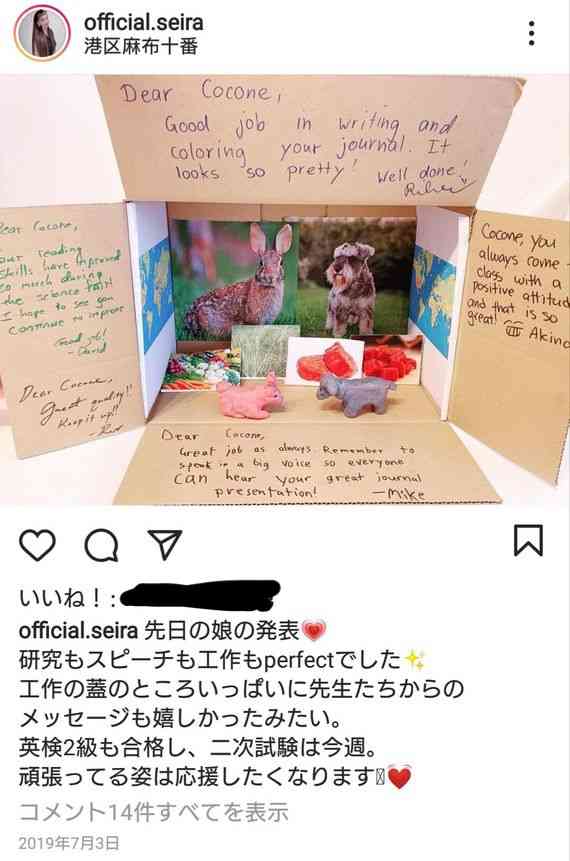 official.seira
港区麻布十番
Dear Cocone,
Good job in writing and
coloring your journal. It
looks so pretty! Well done!
Dear Cocone,
Your reading
skills have improved
so much during
the science fair!
I hope to see you
continue to improve
Good job!
- David
Dear Cocone,
Great quality!!
Keep it up!!
Cocone, you
always come
class with a
positive attitud
and that is so
great!
Akino
Dear Cocone,
Great job as always. Remember to
speak in a big voice so everyone
can hear your great journal
presentation! —Mike
いいね!:
official.seira 先日の娘の発表💗
研究もスピーチも工作もperfectでした✨
工作の蓋のところいっぱいに先生たちからの
メッセージも嬉しかったみたい。
英検2級も合格し、二次試験は今週。
頑張ってる姿は応援したくなります❤️
コメント14件すべてを表示
2019年7月3日